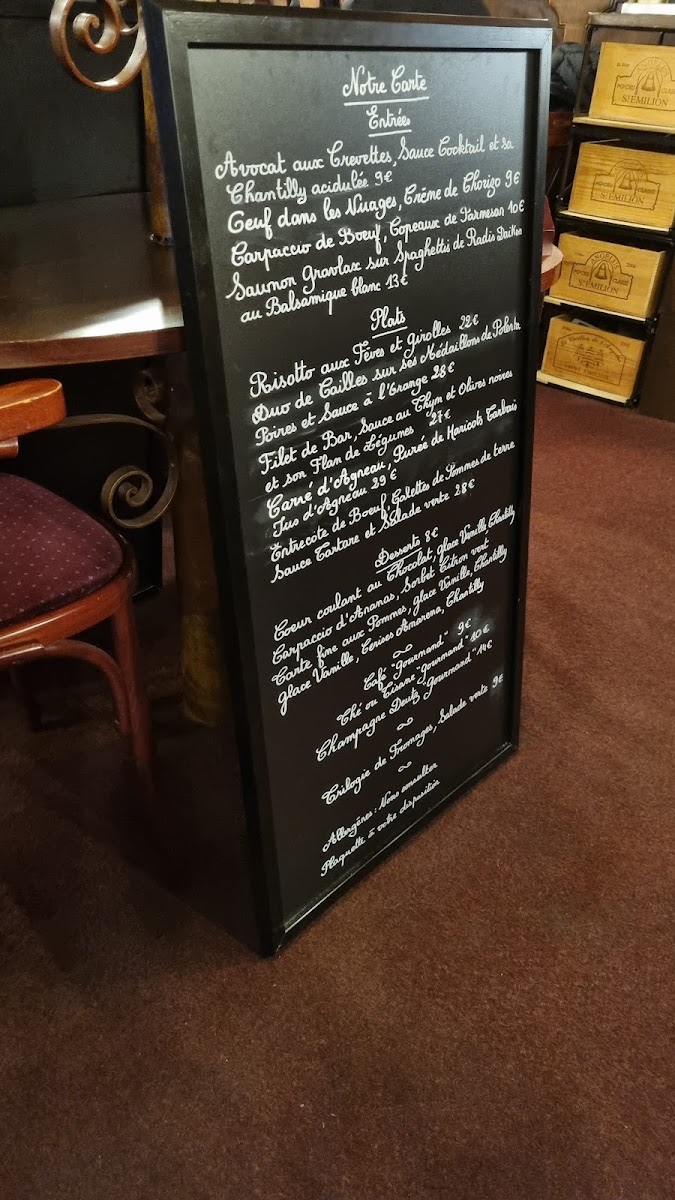 Notre Carte
Entrées
Avocat aux Crevettes, Sauce Cocktail et sa
Chantilly acidulée 9€
Oeuf dans les Nuages, Crème de Chorizo 9€
Carpaccio de Boeuf, Copeaux de Parmesan 10€
Saumon Gravlax sur Spaghettis de Radis Daikon
au Balsamique blanc 13€
Plats
Risotto aux Fèves et Girolles 22€
Duo de Cailles sur ses Médaillons de Polenta
Poires et Sauce à l'Orange 28€
Filet de Bar, Sauce au Thym et Olives noires
et son Flan de Légumes 27€
Carré d'Agneau, Purée de Haricots Tarbais
Jus d'Agneau 29€
Entrecote de Boeuf, Galettes de Pommes de terre
Sauce Tartare et Salade verte 28€
Desserts 8€
Coeur coulant au Chocolat, glace Vanille, Chantilly
Carpaccio d'Ananas, Sorbet Citron vert
Tarte fine aux Pommes, glace Vanille, Chantilly
glace Vanille, Cerises Amarena, Chantilly
~
Café "Gourmand" 9€
Thé ou Tisane "Gourmand" 10€
Champagne Deutz "Gourmand" 14€
~
Trilogie de Fromages, Salade verte 9€
~
Allergènes: Nous consulter
Plaquette à votre disposition
ST EMILION
ANGELUS
ST EMILION
ANGELUS
ST EMILION